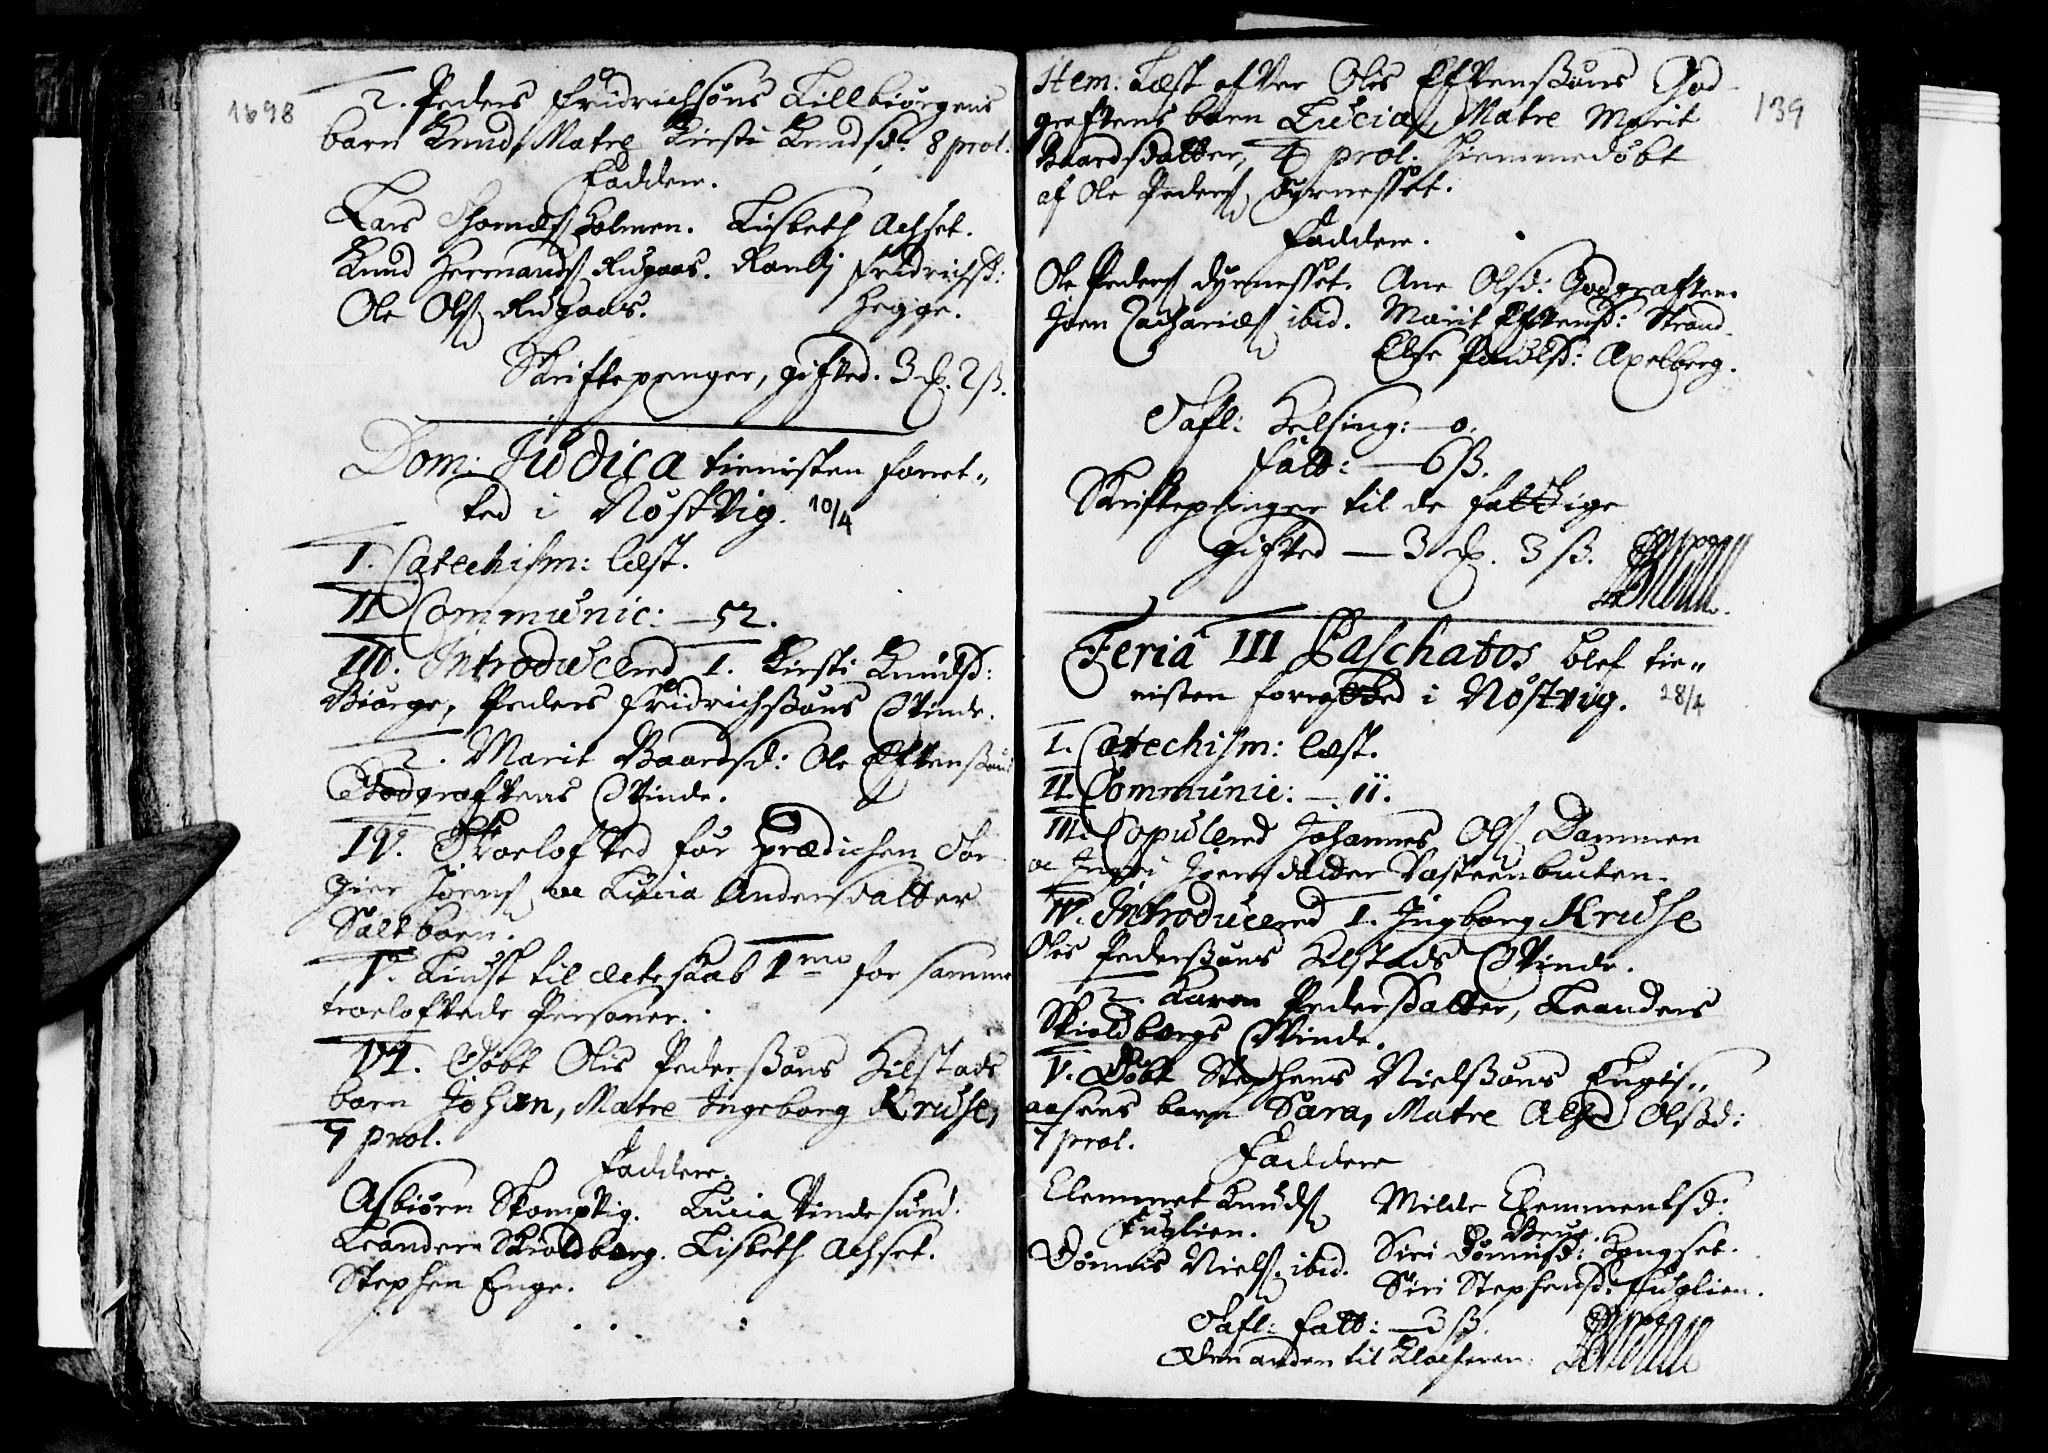 1698
2. Peders Fridrichsøns Lillbiørgens
barn Knud, Matre Kirsti Knudsd: 8 prol.
Faddere.
Lars Thomæs Holmen. Lisbeth Achset.
Knud Hermands Rugaas. Randi Fridrichsd:
Ole Ols Rugaas. Hegge.
Skriftepenger, gifved. 3 2 ß.
Dom: Judica tienisten forret-
ted i Nøstvig. 10/4
I. Catechism: læst.
II Communic: — 52.
III. Introducered 1. Kirsti Knudsd:
Biørge, Peders Fridrichsøns Qvinde.
2. Marit Baardsd: Ole Estenssøns
Godgraftens Qvinde.
IV. Troelofved før Prædichen
Joens oc Lucia Andersdatter
Saltboen.
V. Liust til ecteskab 1mo for samme
troelofvede Personer.
VI. Døbt Olis Pederssøns Hilstads
barn Johan, Matre Ingeborg Kruse,
7 prol.
Faddere.
Asbiørn Skompvig. Lucia Vindesund.
Leander Skioldborg. Lisbeth Achset.
Stephen Enge.
139
Item: Læst ofver Olis Estenssøns God-
graftens barn Lucia, Matre Marit
Baardsdatter, 4 prol. Hiemmedøbt
af Ole Peders Dyrnesset.
Faddere.
Ole Peders Dyrnesset. Ane Olsd: Godgraften
Joen Zachariæs ibid. Marit Estensd: Strand
Else Povelsd: Axelberg.
Tafl: Helsing: — 0.
Fatt: — 6 ß.
Skriftepenger til de fattige
gifved — 3 3 ß.
Feria III Paschatos blef tie-
nisten forretted i Nøstvig. 28/4
I. Catechism: læst.
II. Communic: — 11.
III. Copulered Johannes Ols Dammen
oc Joensdatter
IV. Introducered 1. Ingborg Kruse
Olis Pederssøns Hilstads Qvinde.
2. Karen Pedersdatter, Leanders
Skioldborgs Qvinde.
V. Døbt Stephens Nielssøns Fugls-
aasens barn Sara, Matre Olssd:
7 prol.
Faddere
Clemmet Knuds Milde Clemmentsd:
Fuglien. Brug.
Dønnis Niels. ibid. Siri Dønnisd: Hougset.
Siri Stephensd: Fuglien.
Tafl: Fatt: — 3 ß.
Den anden til Klocheren.